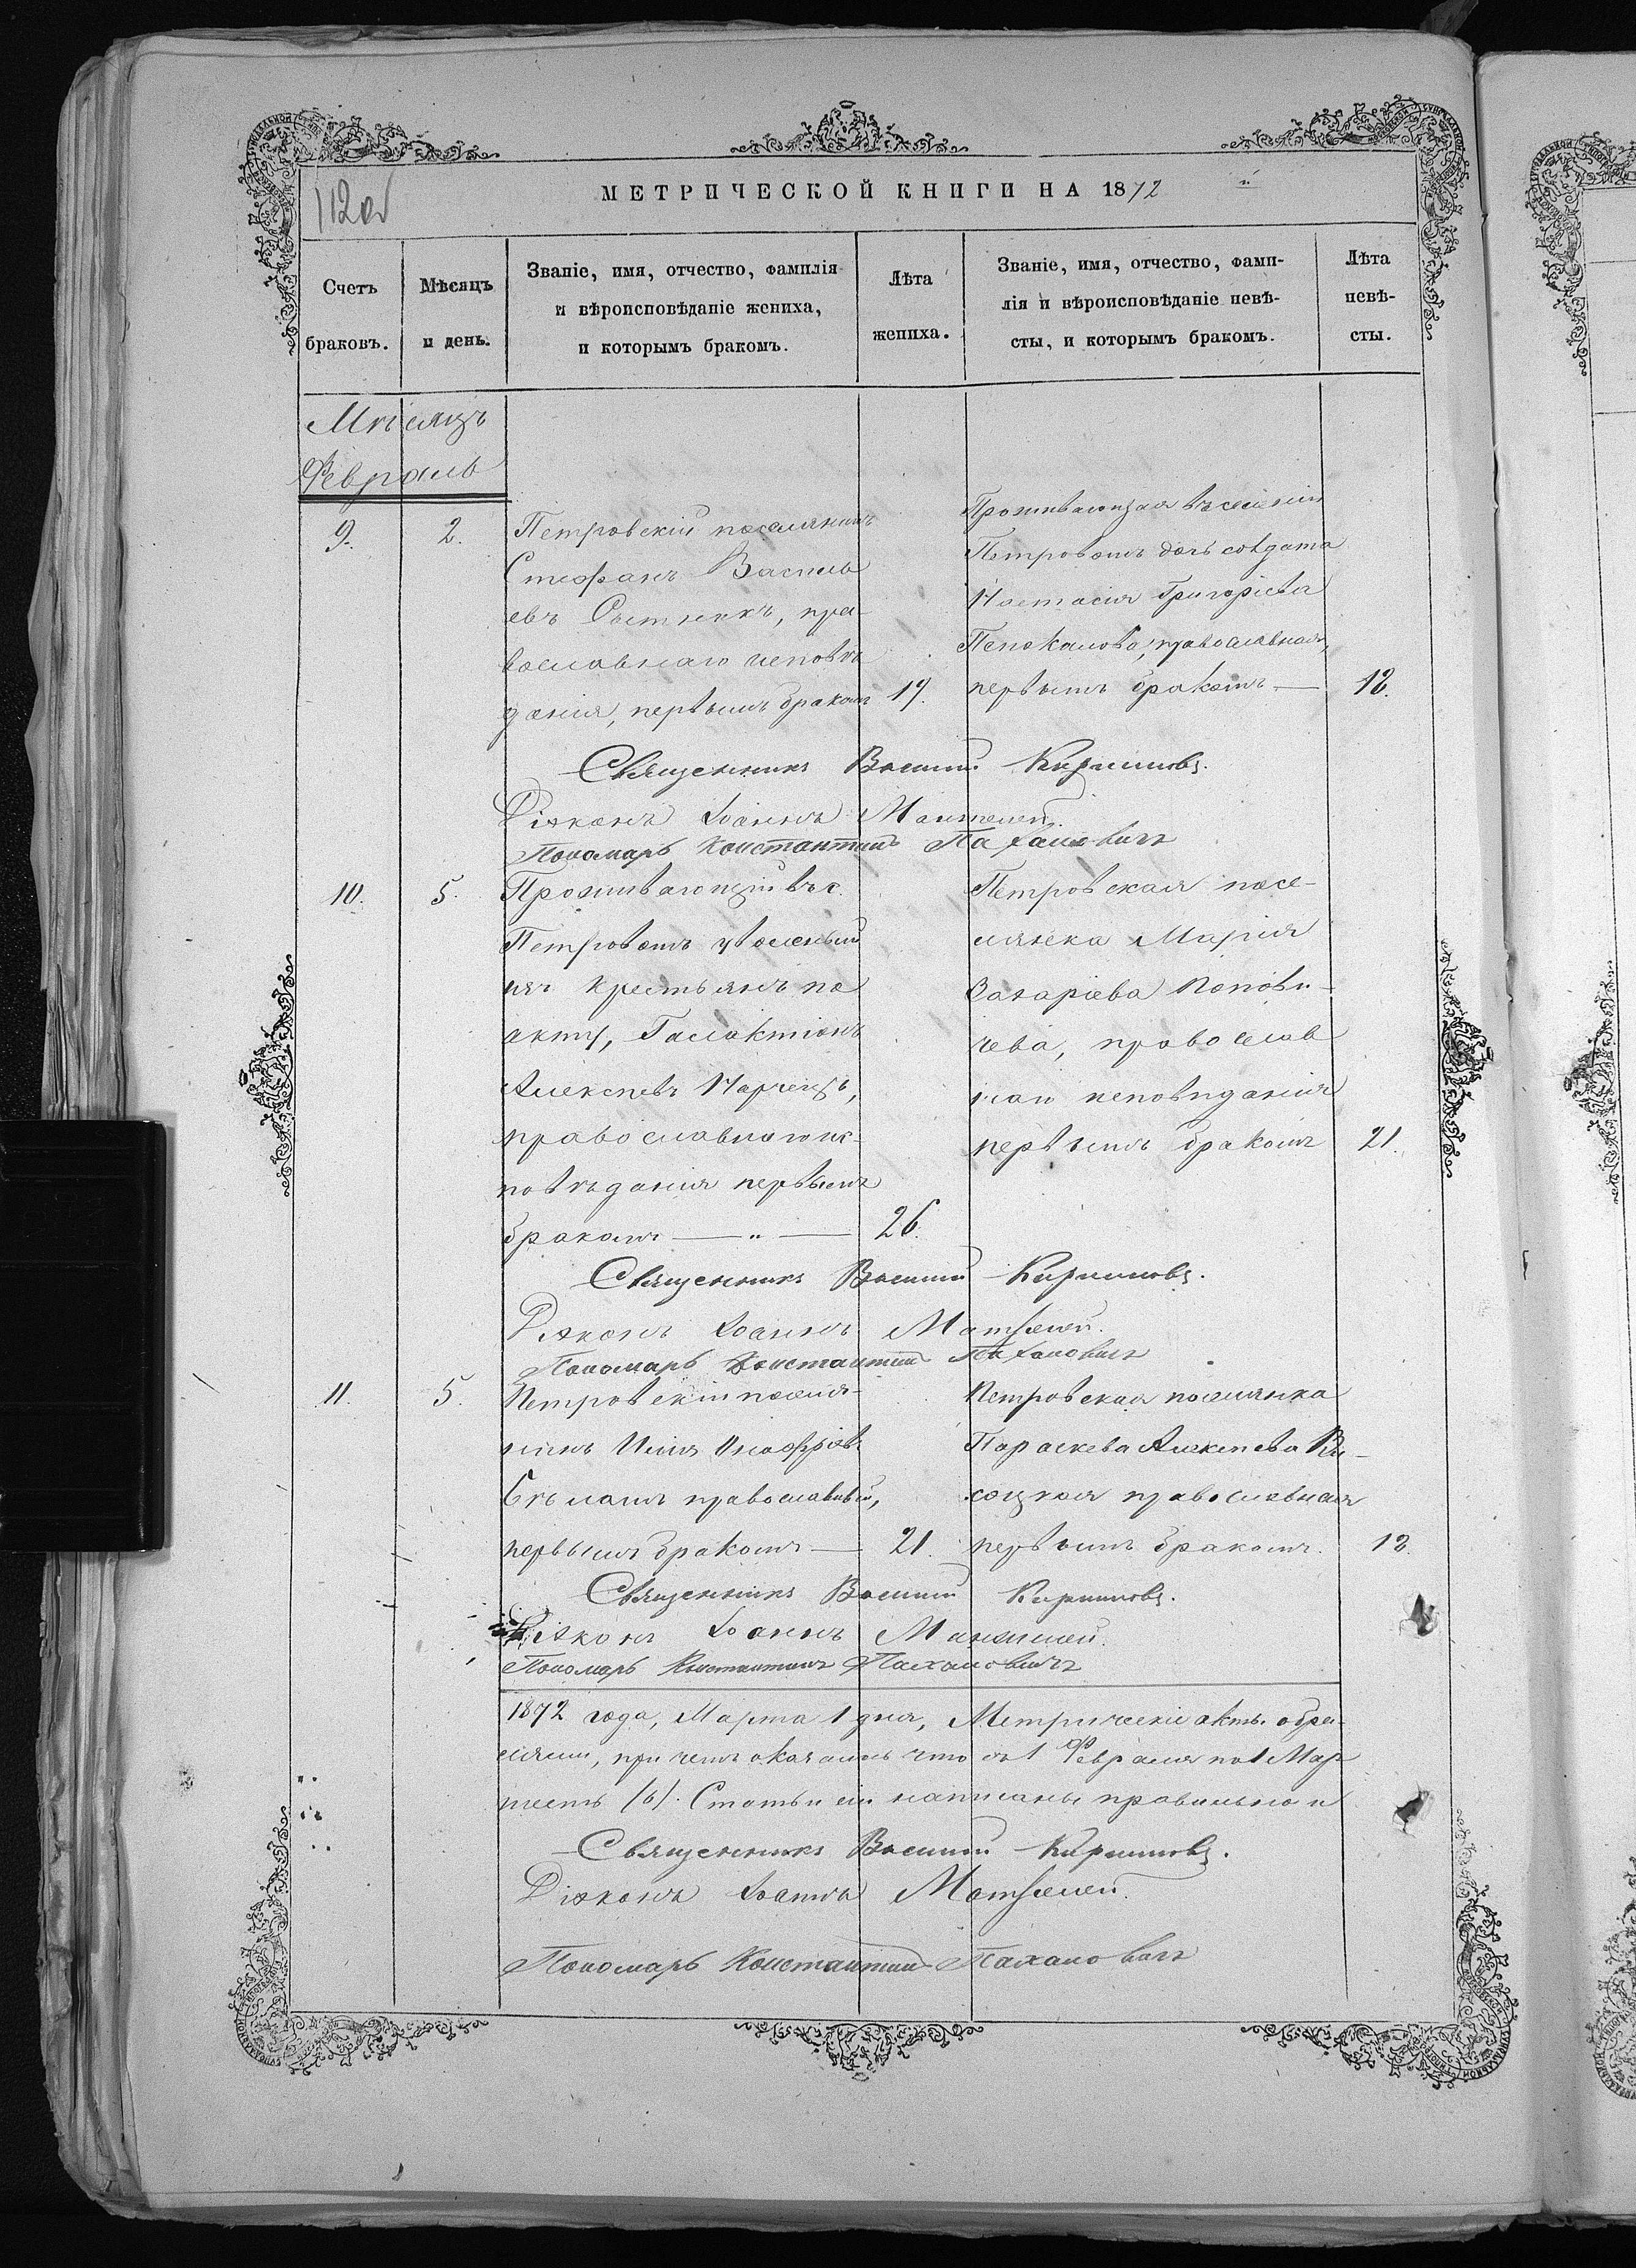 112об
МЕТРИЧЕСКОЙ КНИГИ НА 1872
Счетъ браковъ.
Мѣсяцъ и день.
Званіе, имя, отчество, фамилія
и вѣроисповѣданіе жениха,
и которымъ бракомъ.
Лѣта
жениха.
Званіе, имя, отчество, фами-
лія и вѣроисповѣданіе невѣ-
сты, и которымъ бракомъ.
Лѣта
невѣ-
сты.
Мѣсяцъ
Февраль
9.
2.
Петровскій поселянинъ
Стефанъ Василь
евъ пра-
вославнаго исповѣ
данія, первымъ бракомъ
19.
Проживающая въ селеніи
Петровомъ дочь солдата
Настасія Григоріева
православная,
первымъ бракомъ —
18.
Священникъ Василій Кириловъ.
Діаконъ Іоаннъ
Пономарь Константинъ Пахановичъ
10.
5.
Проживающій въ с.
Петровомъ уволенный
изъ крестьянъ по
акту, Галактіонъ
Алексѣевъ
православнаго ис-
повѣданія первымъ
бракомъ — " —
26.
Петровская посе-
лянка Марія
Захаріева Попови-
чева, православ
наго исповѣданія
первымъ бракомъ
21.
Священникъ Василій Кириловъ.
Діаконъ Іоаннъ
Пономарь Константинъ Пахановичъ
11.
5.
Петровскій поселя-
нинъ Илія Онофріевъ
православный,
первымъ бракомъ —
21.
Петровская поселянка
Параскева Алексѣева Вы-
соцкая православная
первымъ бракомъ.
18.
Священникъ Василій Кириловъ.
Діаконъ Іоаннъ
Пономарь Константинъ Пахановичъ
1872 года, Марта 1 дня, Метрическіе акты обре-
при чемъ оказалось что съ 1 Февраля по 1 Мар
шесть (6). Статьи сіи написаны правильно и
Священникъ Василій Кириловъ.
Діаконъ Іоаннъ
Пономарь Константинъ Пахановичъ